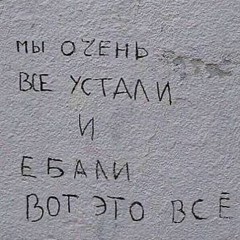 мы ОЧЕНЬ
ВСЕ УСТАЛИ
И
ЕБАЛИ
ВОТ ЭТО ВСЁ